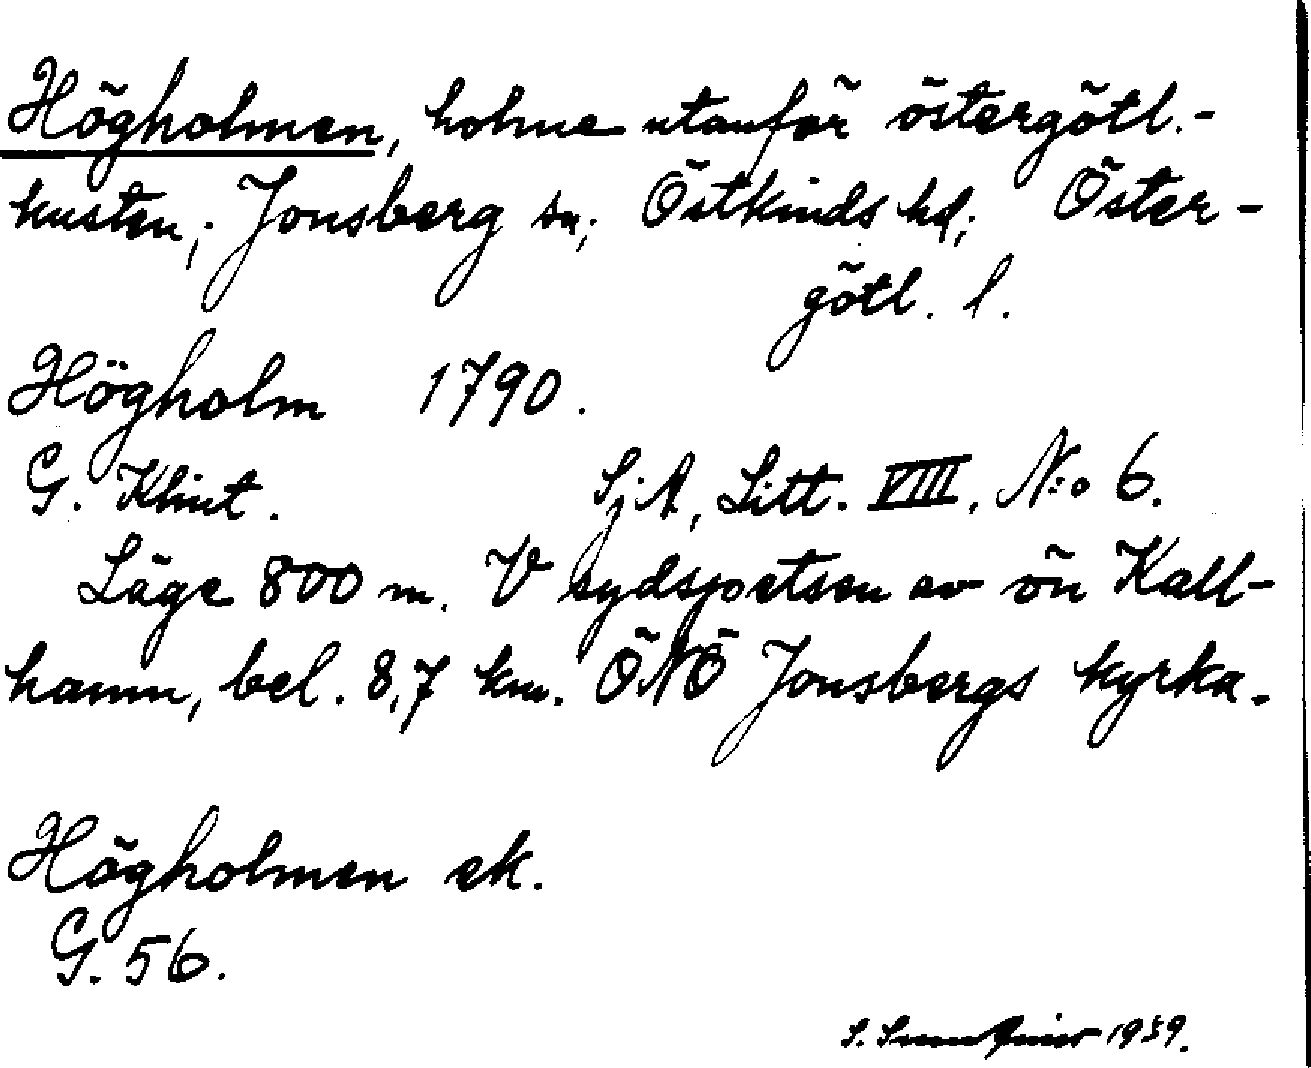 Högholmen, holme utanför östergötl.-
kusten; Jonsberg sn; Östkinds hd; Öster-
götl. l.
Högholm 1790.
G. Klint. SjA, Litt. VIII, N:o 6.
Läge 800 m. V sydspetsen av ön Kall-
hamn, bel. 8,7 km. ÖNÖ Jonsbergs kyrka.
Högholmen ek.
G. 56.
S. 1939.